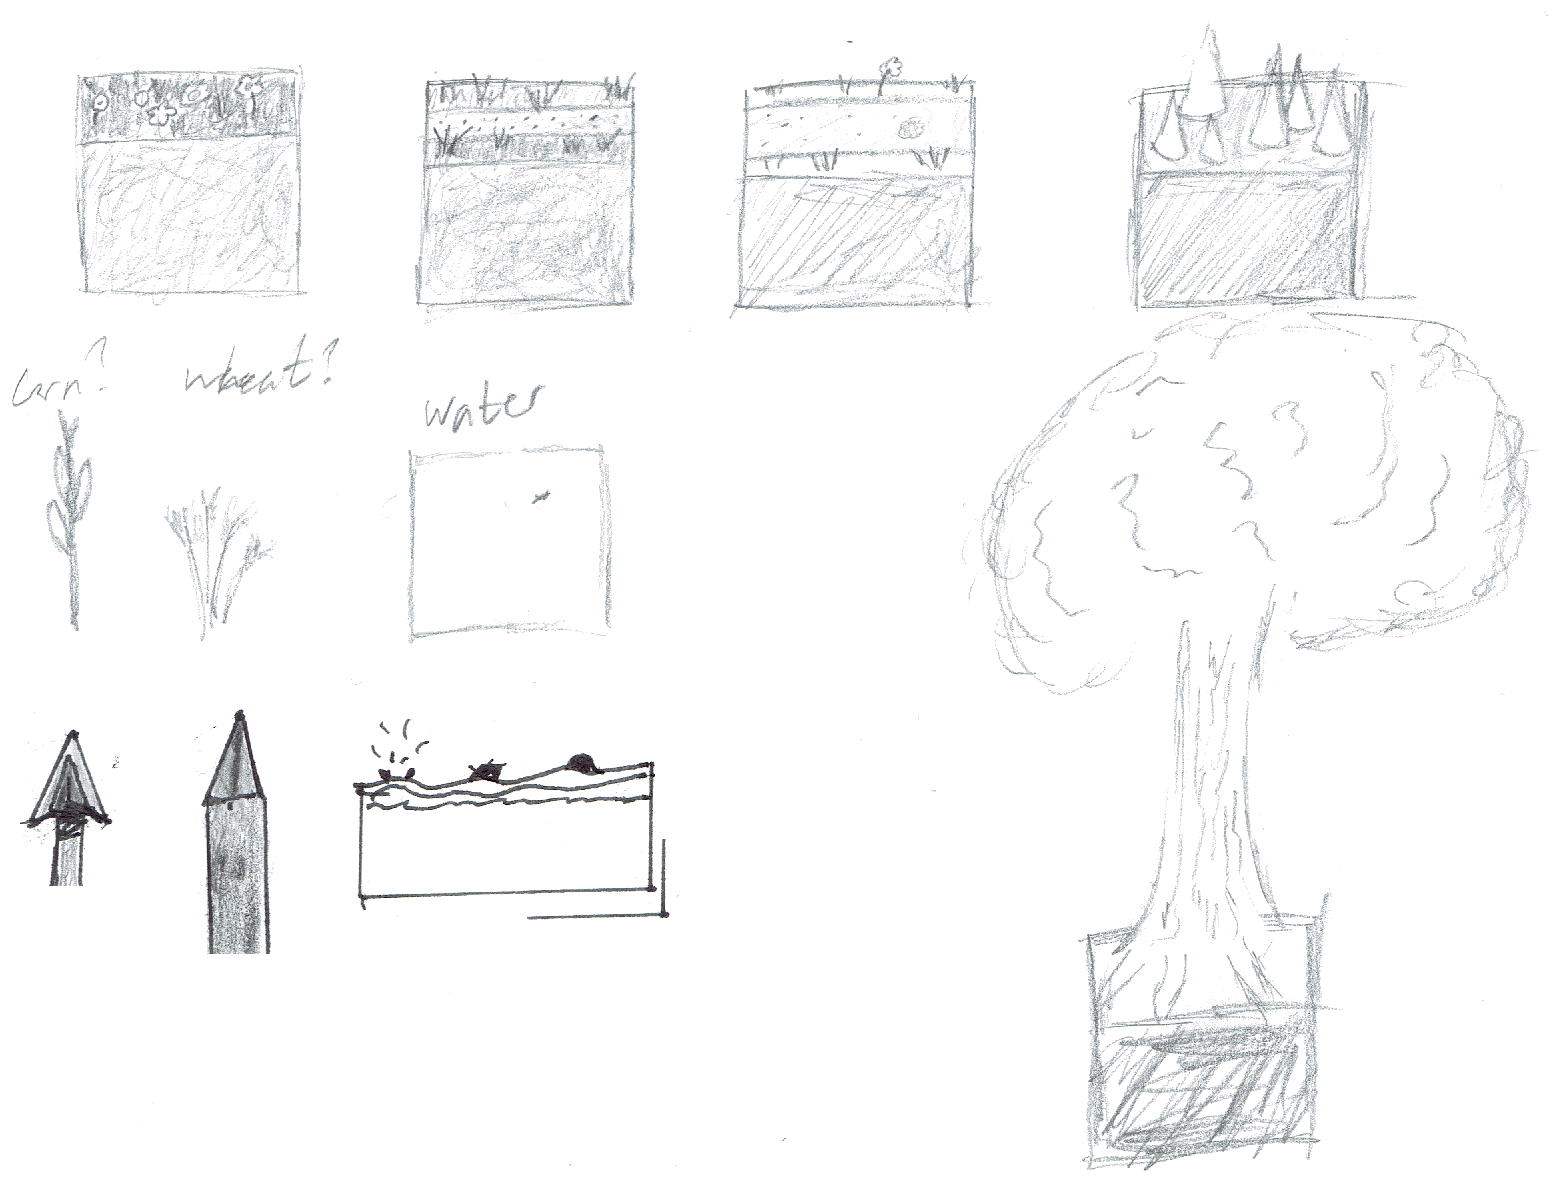 Corn?
wheat?
water